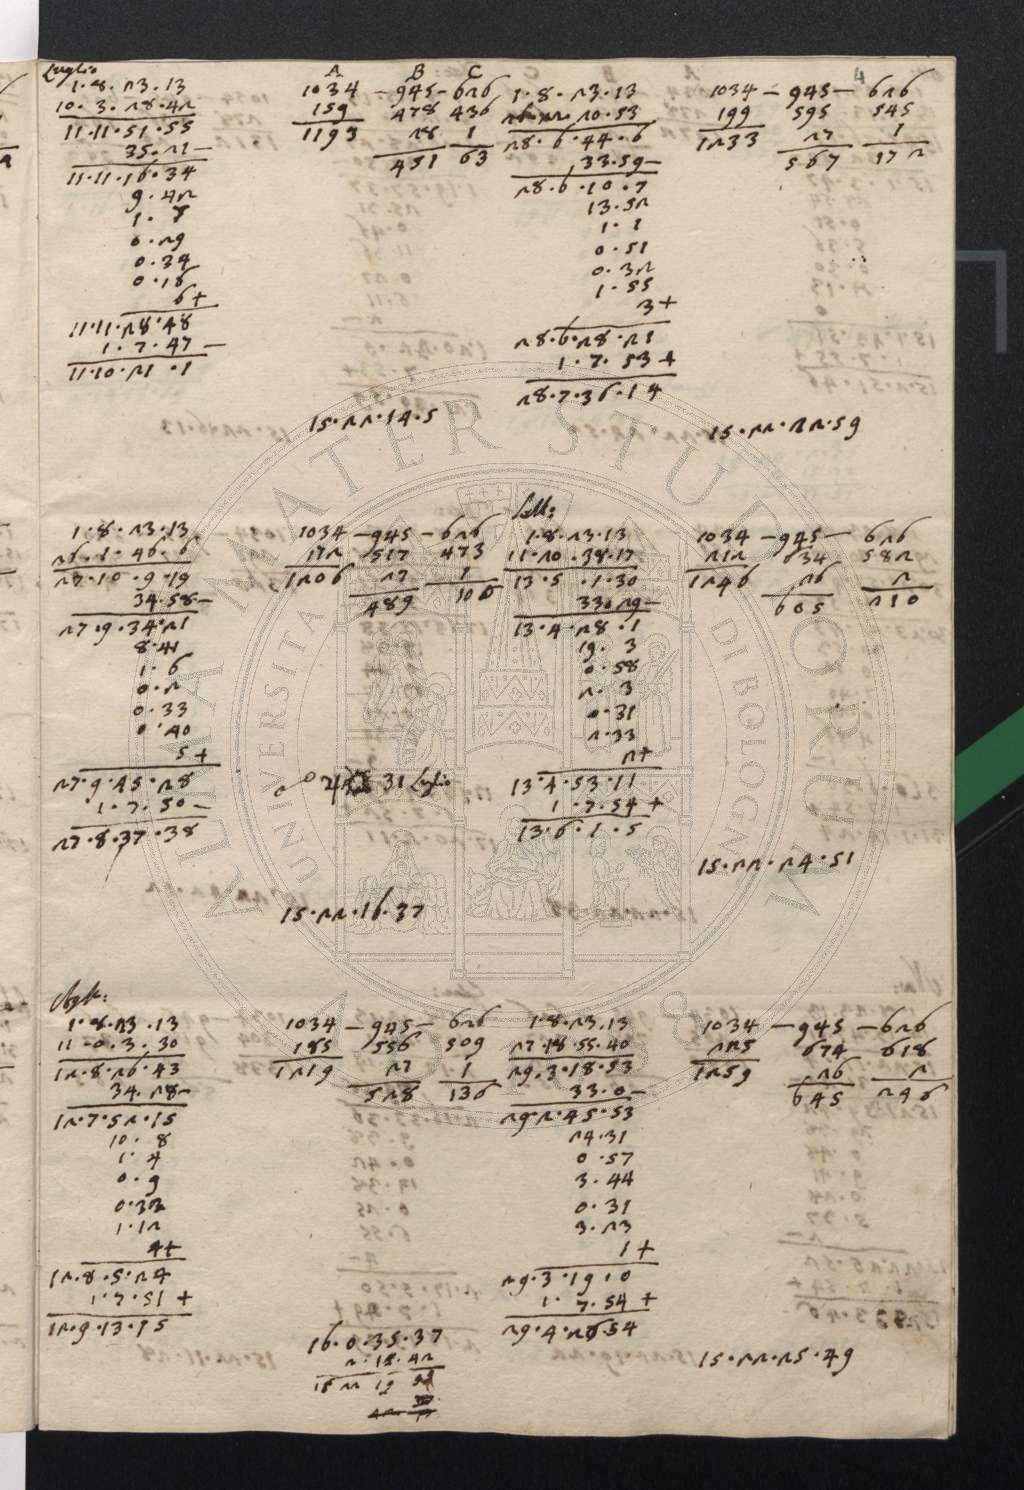 4
Luglio
1.8.23.13
10.3.28.42
11.11.51.55
35.21–
11.11.16.34
9.42
1.7
0.29
0.34
0.16
6+
11.11.28.48
1.7.47–
11.10.21.1
A B C
1034 – 945 – 626
159 478 436
1193 28 1
451 63
15.22.14.5
1.8.23.13
26.22.20.53
28.6.44.6
33.59–
28.6.10.7
13.52
1.1
0.51
0.32
1.55
3+
28.6.28.21
1.7.53+
28.7.36.14
1034 – 945 – 626
199 595 545
1233 27 1
567 172
15.22.22.59
1.8.23.13
26.1.46.6
27.10.9.19
34.58–
27.9.34.21
8.41
1.6
0.2
0.33
0.40
5+
27.9.45.28
1.7.50–
27.8.37.38
1034 – 945 – 626
172 517 473
1206 27 1
489 100
31 Luglio
15.22.16.37
Sett:
1.8.23.13
11.20.38.17
13.5.1.30
33.29–
13.4.28.1
19.3
0.58
2.3
0.31
2.33
2+
13.4.53.11
1.7.54+
13.6.1.5
1034 – 945 – 626
212 634 582
1246 26 2
605 210
15.22.24.51
Agst:
1.8.23.13
11.0.3.30
12.8.26.43
34.28–
12.7.52.15
10.8
1.4
0.9
0.33
1.12
4+
12.8.5.24
1.7.51+
12.9.13.15
1034 – 945 – 626
185 556 509
1219 27 1
528 136
16.0.35.37
2.18.42
15 22 19
1.8.23.13
27.18.55.40
29.3.18.53
33.0–
29.2.45.53
24.31
0.57
3.44
0.31
3.23
1+
29.3.19.0
1.7.54+
29.4.26.54
1034 – 945 – 626
225 674 618
1259 26 2
645 246
15.22.25.49
ALMA MATER STUDIORUM
UNIVERSITÀ DI BOLOGNA